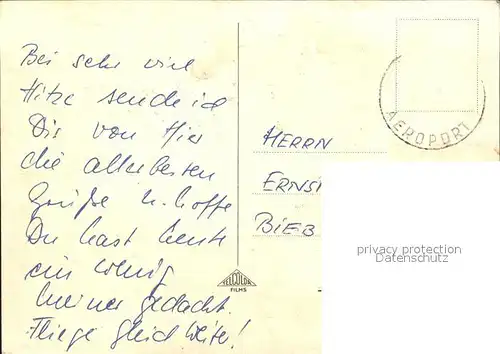 Bei sehr viel
Hitze sende ich
Dir von Hier
die allerbesten
Grüße u. hoffe
Du hast heute
ein wenig
meiner gedacht.
Fliege gleich weiter!
AEROPORT
HERRN
ERNST
BIEB
privacy protection
Datenschutz
FILMS